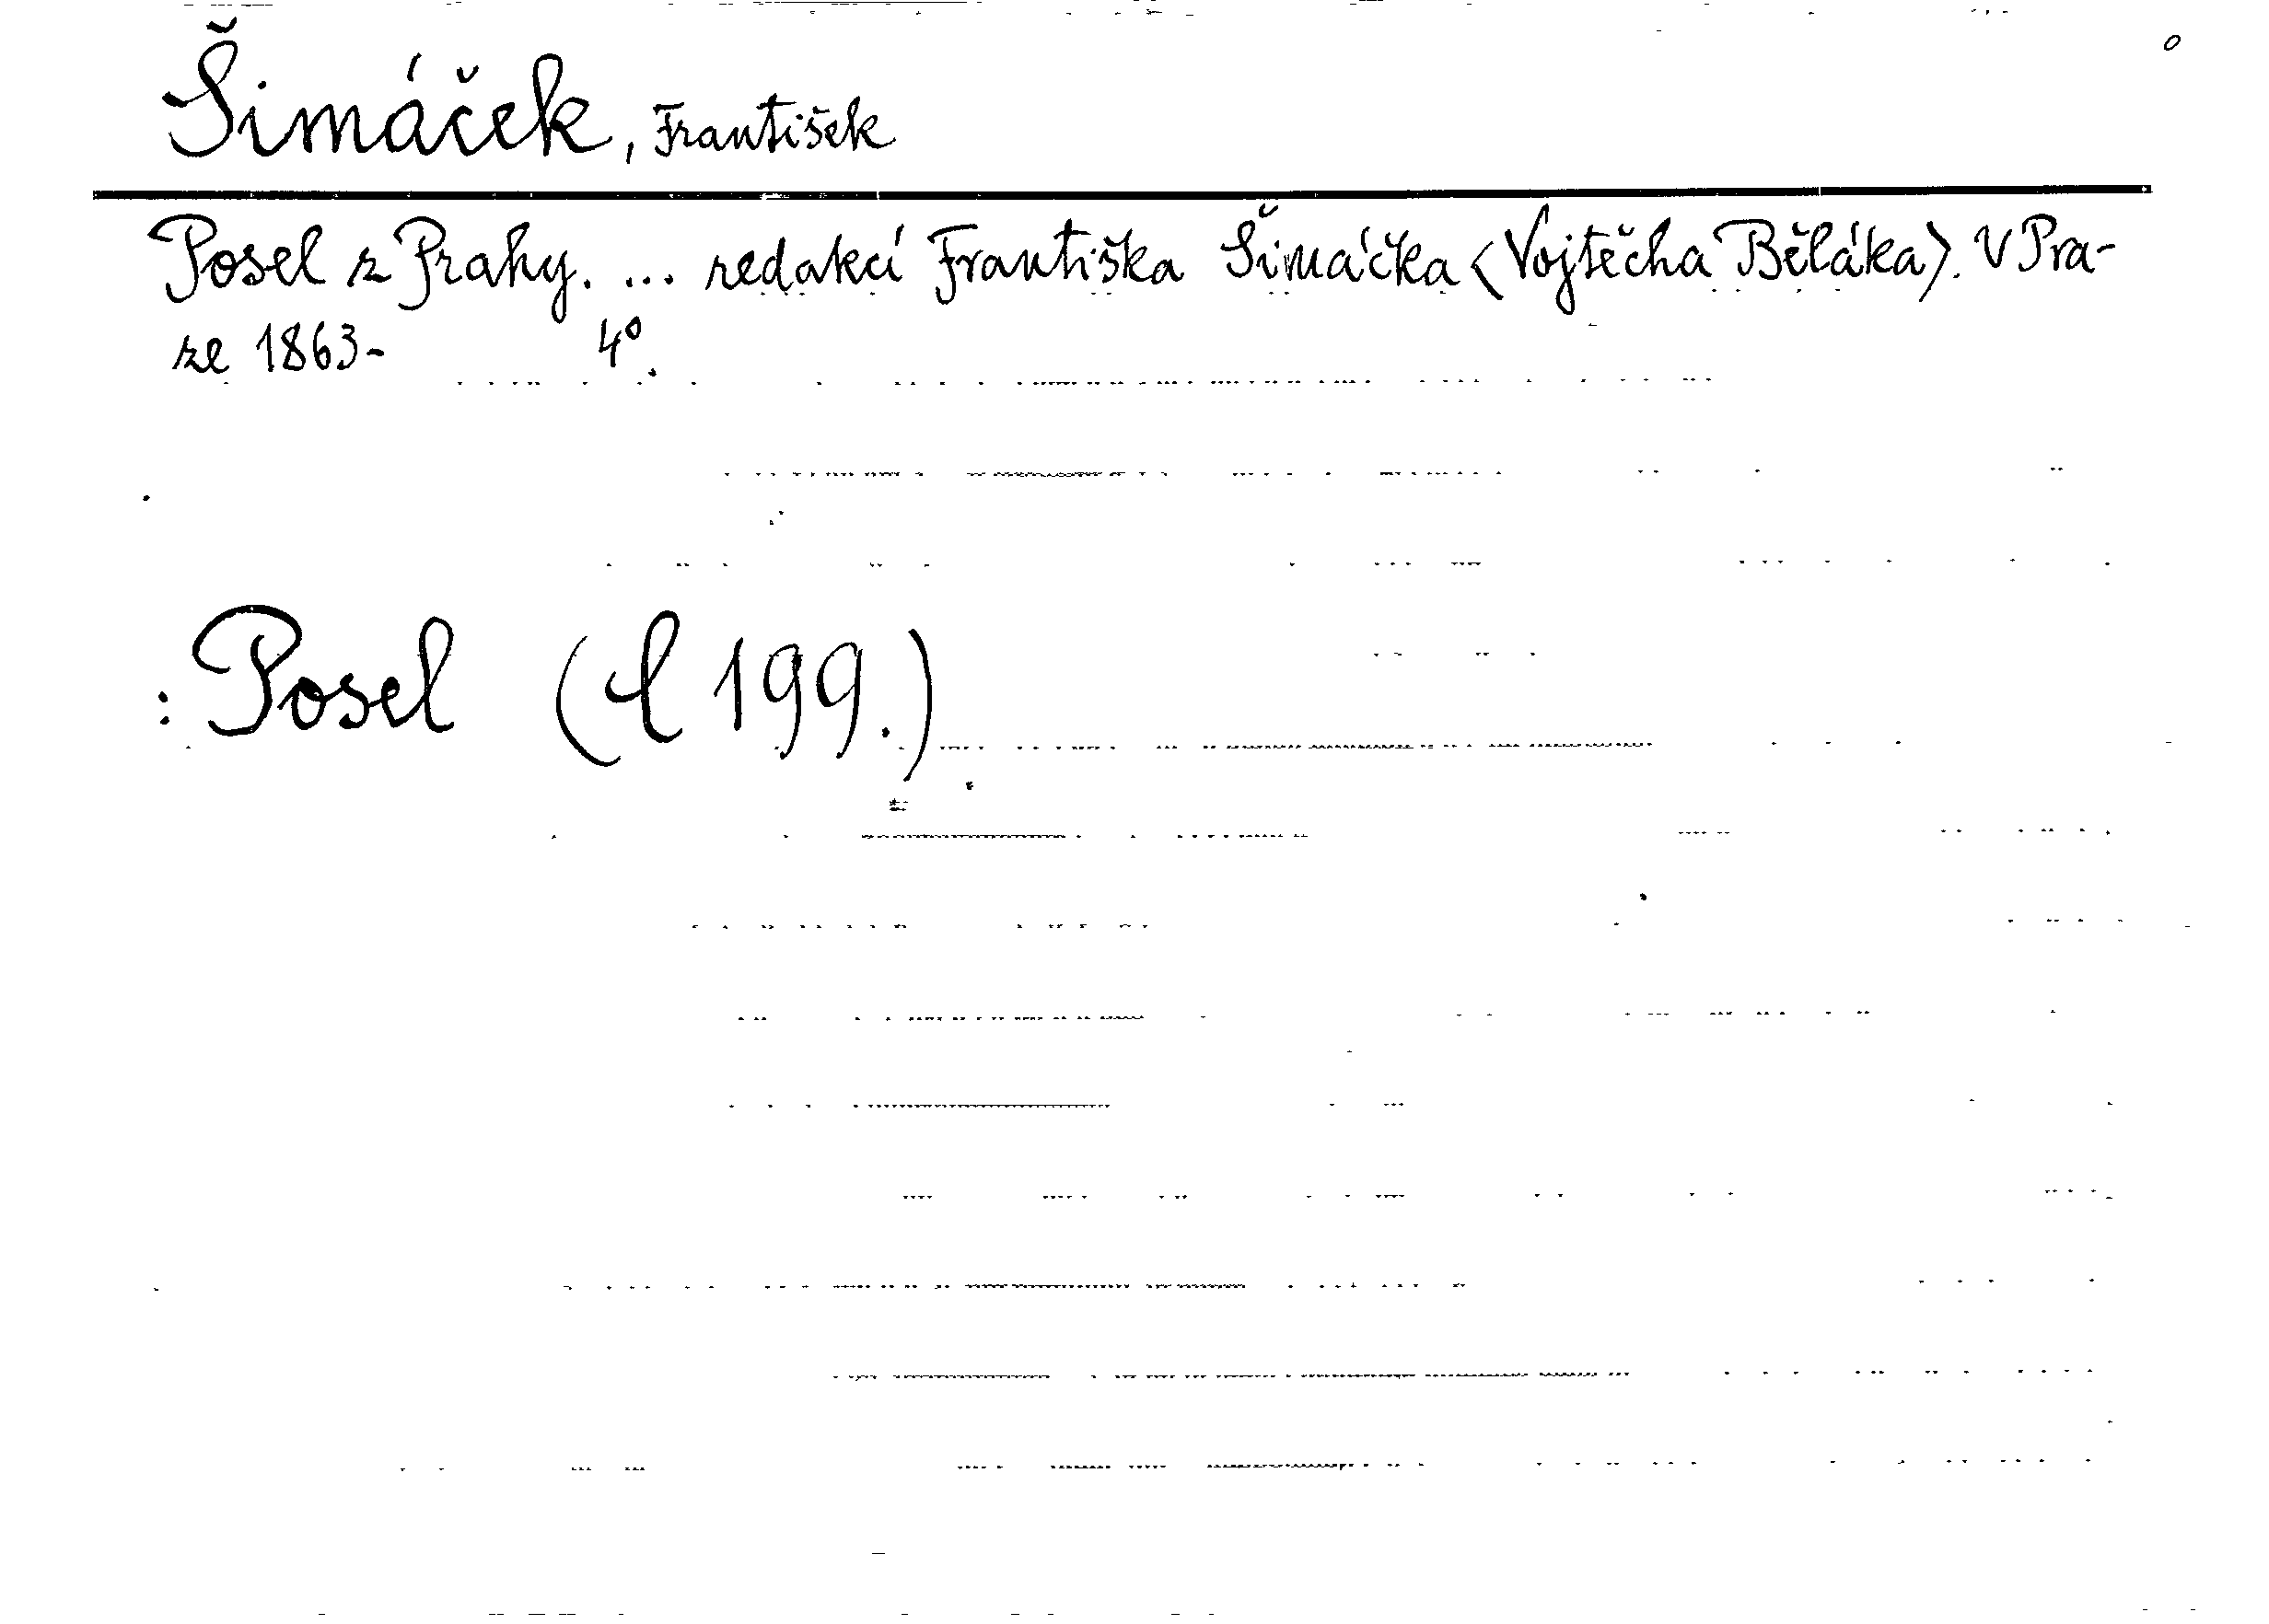 Šimáček, František
Posel z Prahy. ... redakcí Františka Šimáčka (Vojtěcha Běláka). V Pra-
ze 1863- 4º.
: Posel (l 199.)